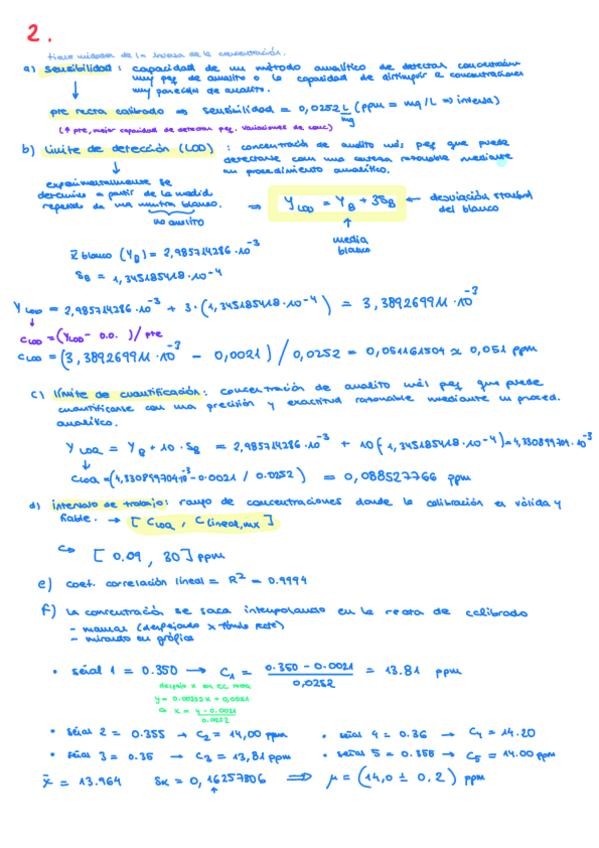 2.
tiene unidades de la inversa de la concentración.
a) Sensibilidad : capacidad de un método analítico de detectar concentración
muy peq de analito o la capacidad de distinguir concentraciones
muy parecidas de analito.
pte recta calibrado ⇒ sensibilidad = 0,0252 L/mg (ppm = mg/L ⇒ inversa)
(↑ pte, mejor capacidad de detectar peq. variaciones de conc)
b) Límite de detección (LOD) : concentración de analito más peq que puede
detectarse con una certeza razonable mediante
un procedimiento analítico.
experimentalmente se
determina a partir de la medida
repetida de una muestra blanco.
no analito
⇒ Y LOD = Y B + 3S B ← desviación standard
del blanco
↑
media
blanco
x̄ blanco (Y B) = 2,985714286·10⁻³
S B = 1,345185418·10⁻⁴
Y LOD = 2,985714286·10⁻³ + 3·(1,345185418·10⁻⁴) = 3,389269911·10⁻³
C LOD = (Y LOD - o.o.) / pte
C LOD = (3,389269911·10⁻³ - 0,0021) / 0,0252 = 0,051161504 ≈ 0,051 ppm
c) límite de cuantificación : concentración de analito más peq que puede
cuantificarse con una precisión y exactitud razonable mediante un proced.
analítico.
Y LOQ = Y B + 10·S B = 2,985714286·10⁻³ + 10(1,345185418·10⁻⁴) = 4,330899704·10⁻³
C LOQ = (4,330899704·10⁻³ - 0.0021 / 0.0252) = 0,088527766 ppm
d) intervalo de trabajo : rango de concentraciones donde la calibración es válida y
fiable. → [ C LOQ , C lineal,mx ]
↳ [ 0.09 , 30 ] ppm
e) coef. correlación lineal = R² = 0.9994
f) La concentración se saca interpolando en la recta de calibrado
- manual (despejando x tipo recta)
- mirando en gráfica
• señal 1 = 0.350 → C₁ = (0.350 - 0.0021) / 0,0252 = 13.81 ppm
despejo x en ec recta
y = 0.00255x + 0,0021
x = (y - 0.0021) / 0.0252
• señal 2 = 0.355 → C₂ = 14,00 ppm • señal 4 = 0.36 → C₄ = 14.20
• señal 3 = 0.35 → C₃ = 13,81 ppm • señal 5 = 0.355 → C₅ = 14.00 ppm
x̄ = 13.964 Sx = 0,16257806 ⇒ μ = (14,0 ± 0,2) ppm